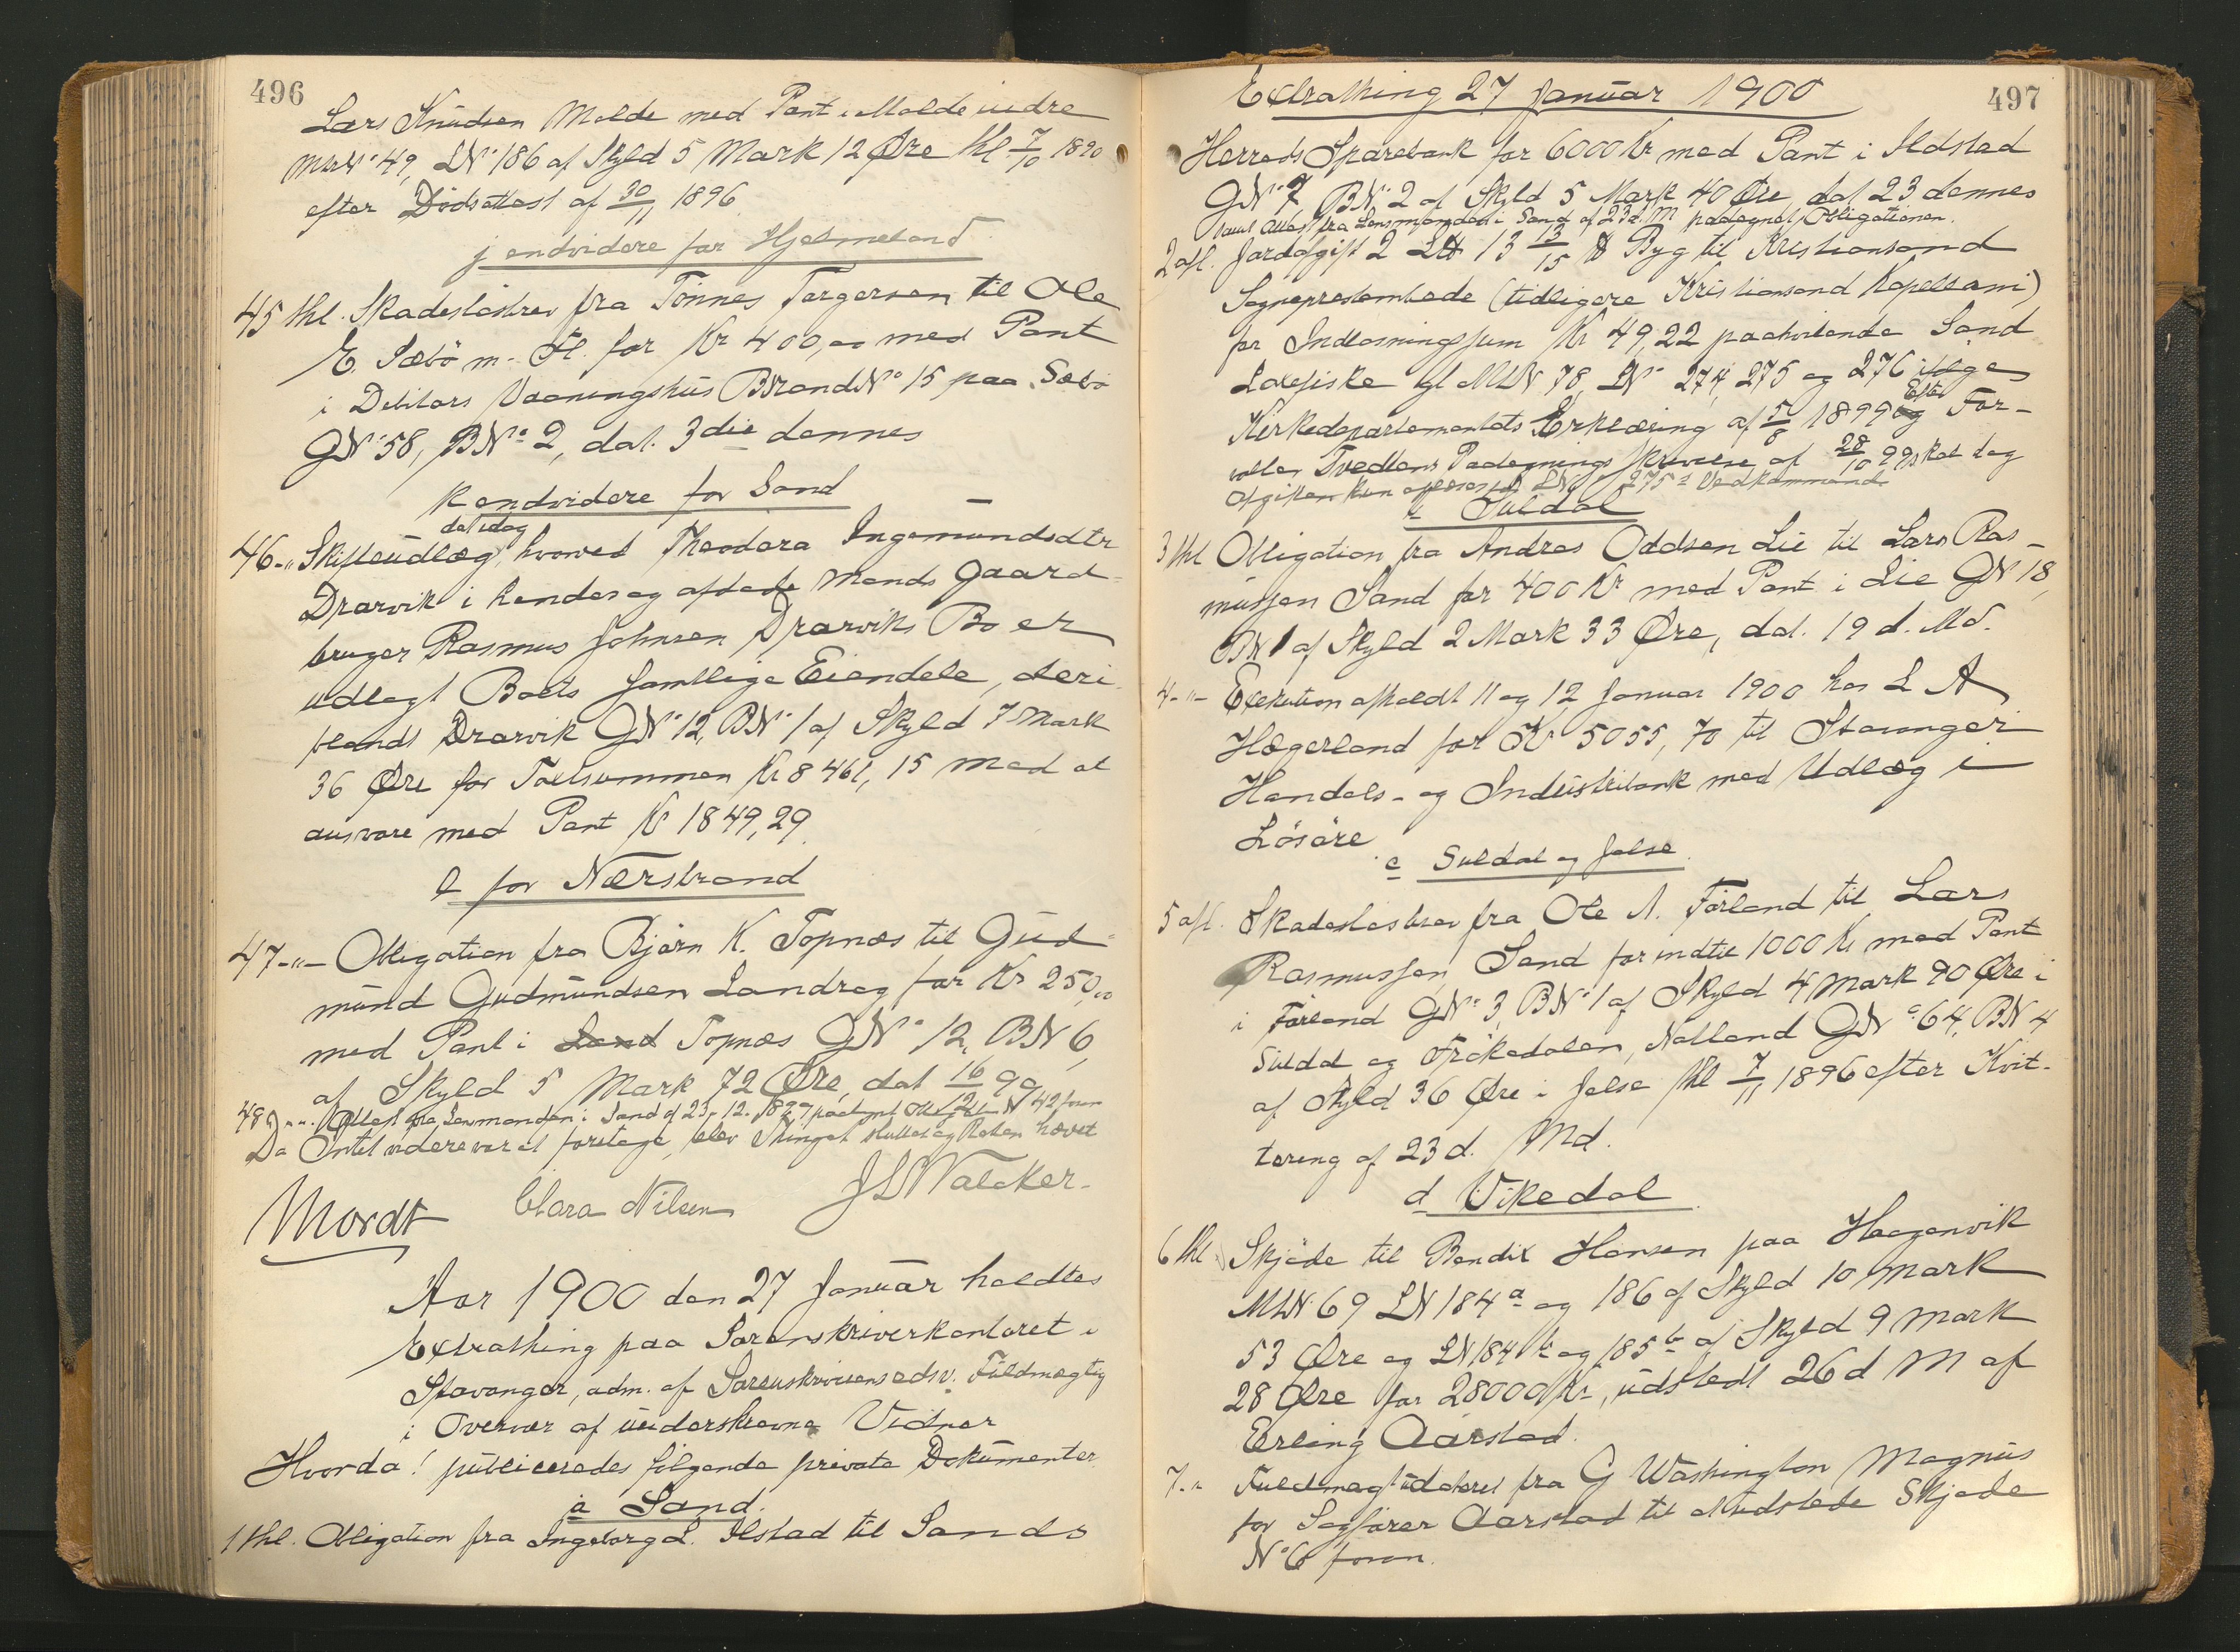 496
Lars Knudsen Molde med Pant i Molde indre
MtrN° 49, LN° 186 af Skyld 5 Mark 12 Øre thl. 7/10 1890
efter Dödsattest af 30/11 1896
j endvidere for Hjelmeland
45 thl. Skadeslösbrev fra Tönnes Torgersen til Ole
E. Sæbö m. Fl. for Kr 400,00 med Pant
i Debitors Vaaningshus BrandN° 15 paa Sæbö
GN° 58, BN° 2, dat. 3die dennes
k endvidere for Sand
dat idag
46 -„- Skifteudlæg, hvorved Theodora Ingemundsdtr
Drarvik i hendes og afdøde Mands Gaard-
bruger Rasmus Johnsen Drarviks Bo er
udlagt Boets samtlige Eiendele, deri-
blandt Drarvik GN° 12, BN° 1 af Skyld 7 Mark
36 Øre for Taxtsummen Kr 8461,15 med at
ansvare med Pant Kr 1849,29
l for Nærstrand
47 -„- Obligation fra Bjørn K. Topnæs til Gud-
mund Gudmundsen Landrag for Kr 250,00
med Pant i Land Topnæs GN° 12, BN 6,
af Skyld 5 Mark 72 Øre, dat 16/12 99
48 -„- Attest fra Lensmanden i Sand af 23-12-1899 paategnet N 42 foran
Da Intet videre var at foretage, blev Thinget sluttet og Retten hævet
Mordt Clara Nilsen J L Walcker.
Aar 1900 den 27 Januar holdtes
Extrathing paa Sorenskriverkontoret i
Stavanger, adm. af Sorenskriverens edsv. Fuldmægtig
i Overvær af underskrevne Vidner
Hvorda! publiceredes følgende private Dokumenter
a Sand.
1 thl. Obligation fra Ingeborg L. Ilstad til Sands
Extrathing 27 Januar 1900
497
Herreds Sparebank for 6000 Kr med Pant i Ildstad
GN° 7 BN° 2 af Skyld 5 Mark 40 Øre dat 23 dennes
samt Attest fra Lensmanden i Sand af 23 d. M paategnet Obligationen.
2 afl. Jordafgift 2 L℔ 13 13/15 ℔ Byg til Kristiansand
Sogneprestembede (tidligere Kristiansand Kapellani)
for Indløsningssum Kr 49,22 paahvilende Sand
Laxefiske gl MLN 78, LN° 274, 275 og 276 ifølge
Kirkedepartementets Erklæring af 5/8 1899 og Efter For-
valter Tvedtens Paategnings Skrivelse af 28/10 99, skal dog
Afgiften kun LN 275 a Vedkommende
b Suldal
3 thl Obligation fra Andres Oddsen Lie til Lars Ras-
mussen Sand for 400 Kr med Pant i Lie GN 18,
BN 1 af Skyld 2 Mark 33 Øre, dat. 19 d. Md.
4 -„- Exekution afholdt 11 og 12 Januar 1900 hos L A
Hægerland for Kr 5055,70 til Stavanger
Handels- og Industribank med Udlæg i
Lösöre
c Suldal og Jelse
5 afl. Skadeslösbrev fra Ole A. Förland til Lars
Rasmussen Sand for indtil 1000 Kr med Pant
i Förland GN° 3, BN° 1 af Skyld 4 Mark 90 Øre i
Suldal og Frökedalen, Nalland GN° 64, BN 4
af Skyld 36 Øre i Jelse thl 7/11 1896 efter Kvit-
tering af 23 d. Md.
d Vikedal
6 thl Skjöde til Bendix Hansen paa Haagenvik
MLN 69 LN 184 a og 186 af Skyld 10 Mark
53 Øre og LN 184 b og 185 b af Skyld 9 Mark
28 Øre for 28000 Kr, udstedt 26 d M af
Erling Aarstad.
7 -„- Fuldmagt udateret fra G Washington Magnus
for Sagfører Aarstad til at udstede Skjøde
N° 6 foran.